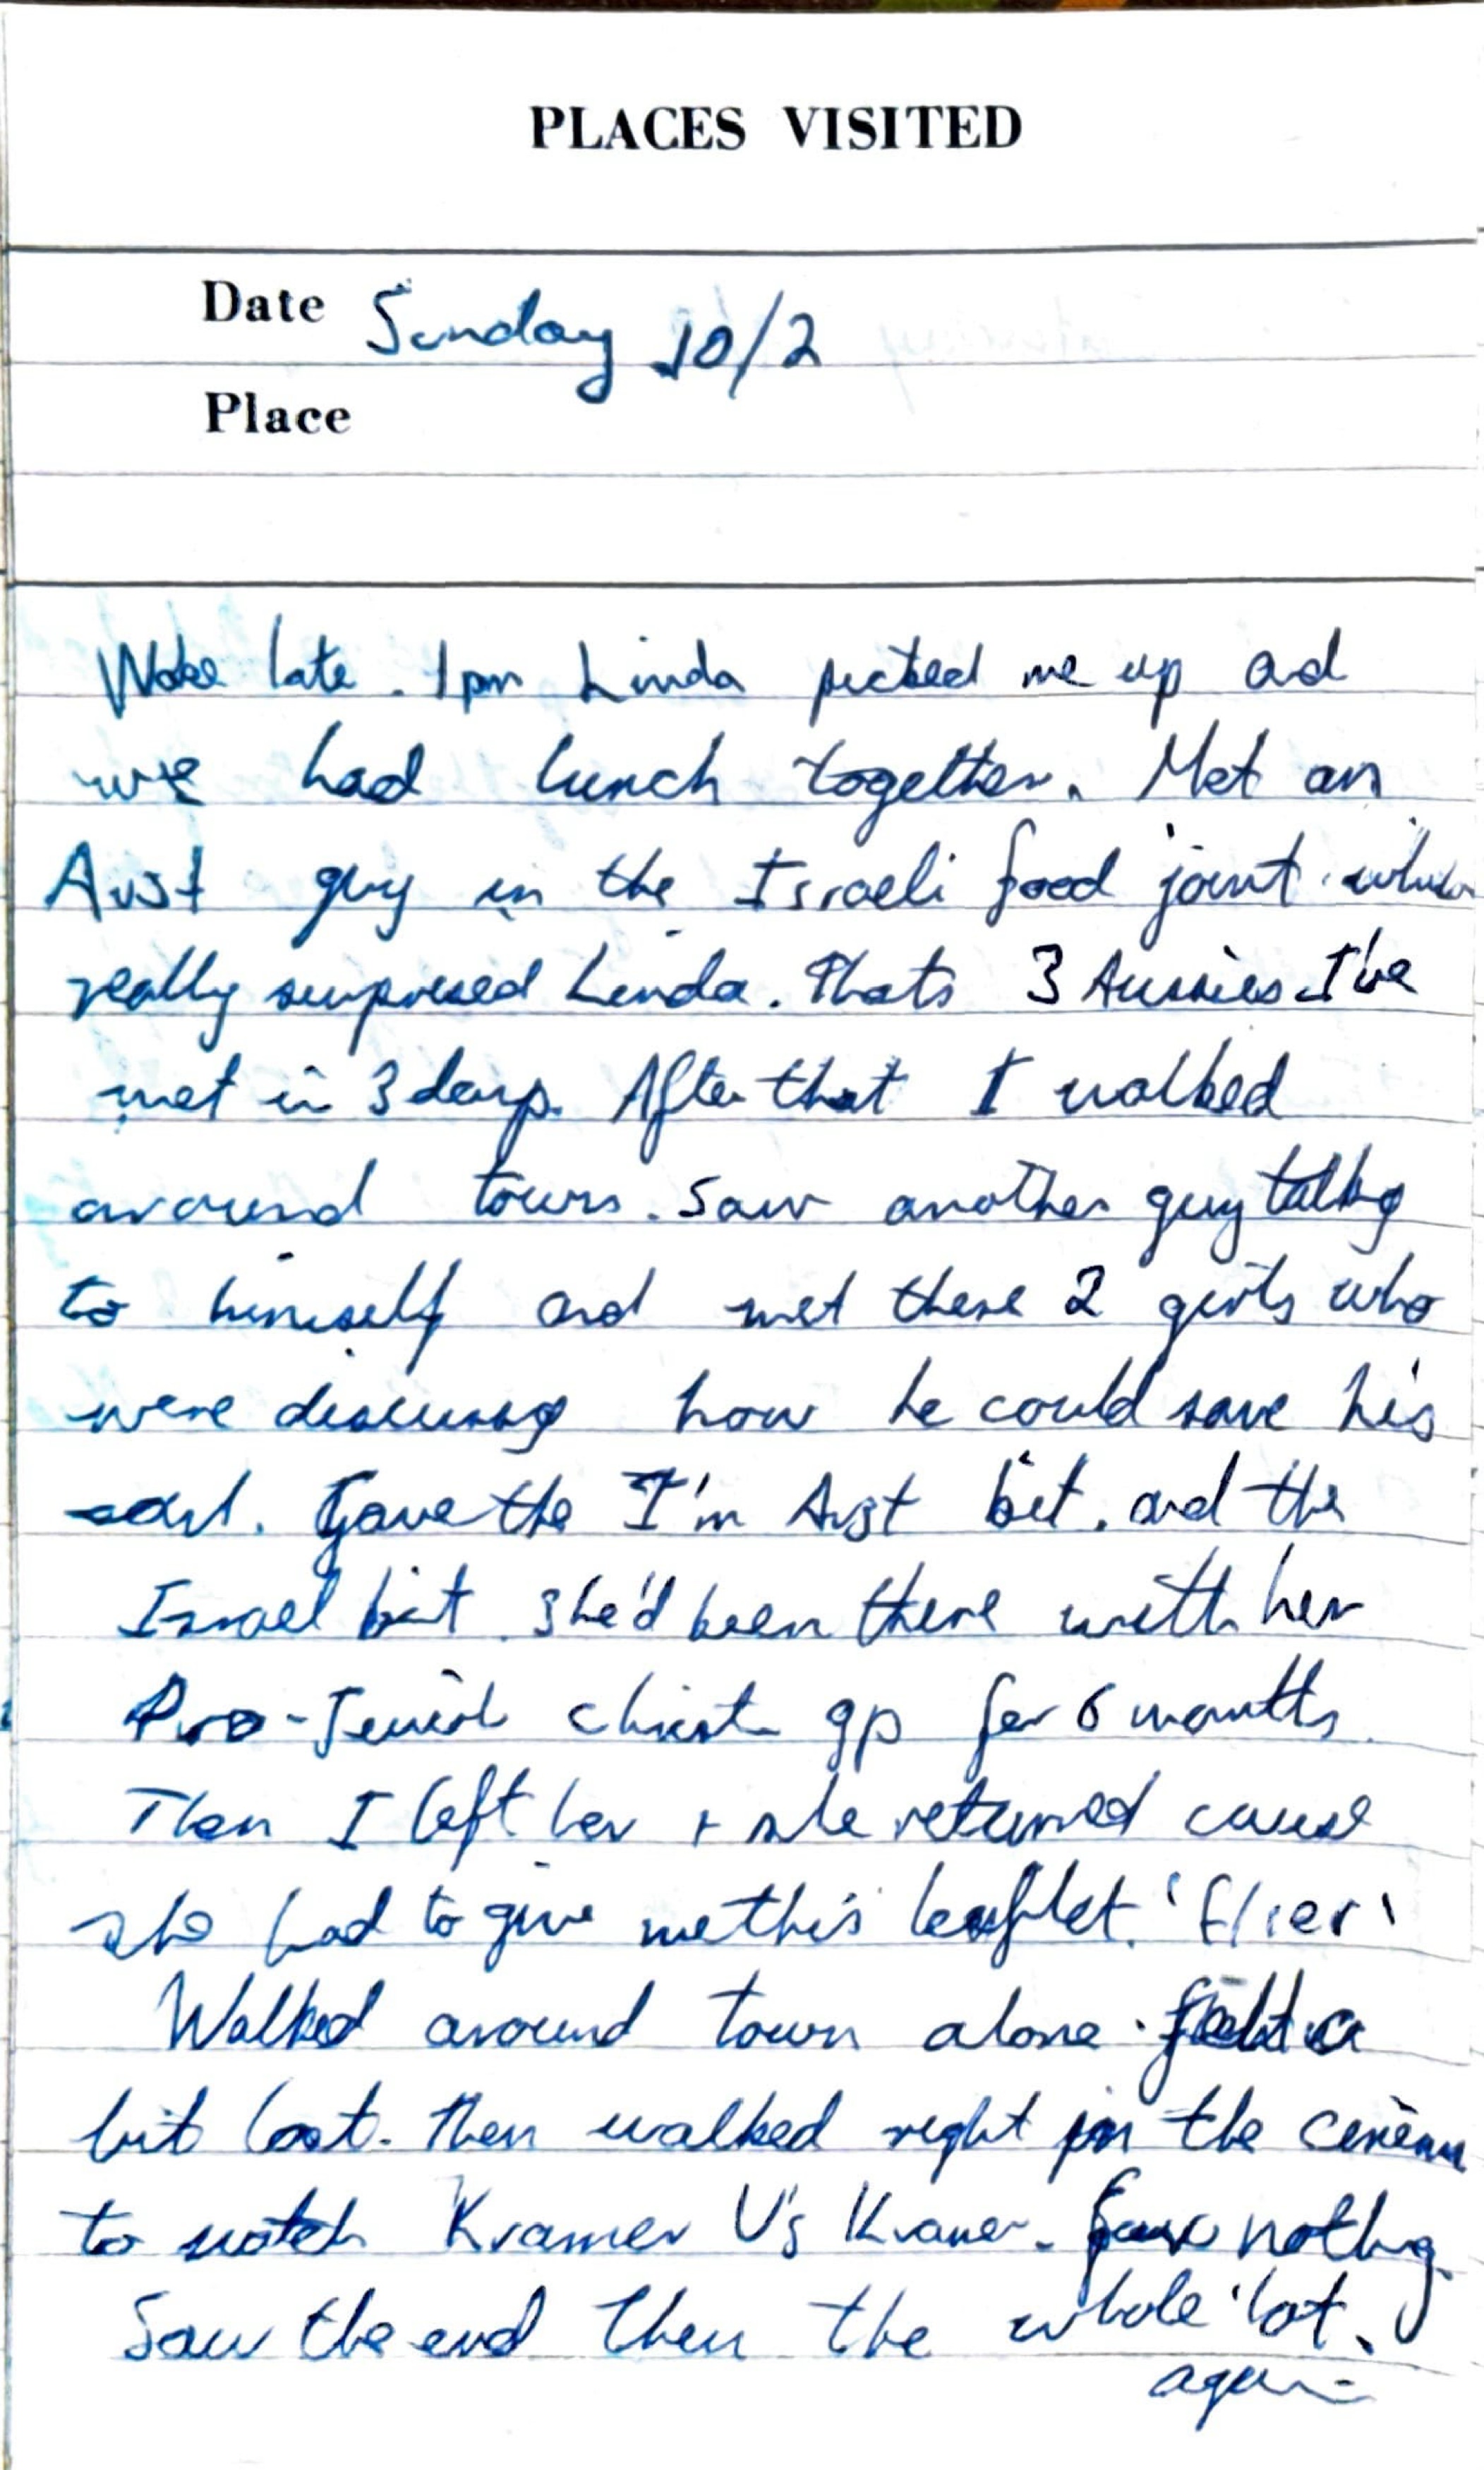 PLACES VISITED
Date Sunday 10/2
Place
Woke late. 1pm Linda picked me up and
we had lunch together. Met an
Aust guy in the Israeli food joint which
really surprised Linda. Thats 3 Aussies I've
met in 3 days. After that I walked
around town. Saw another guy talking
to himself and met these 2 girls who
were discussing how he could save his
soul. Gave the I'm Aust bit. and the
Israel bit. She'd been there with her
Pro-Jewish christ gp for 6 months.
Then I left her + she returned cause
she had to give me this leaflet. 'flier'
Walked around town alone. felt a
bit lost. Then walked right in the cinema
to watch Kramer Vs Kramer. for nothing.
Saw the end then the whole lot.
again